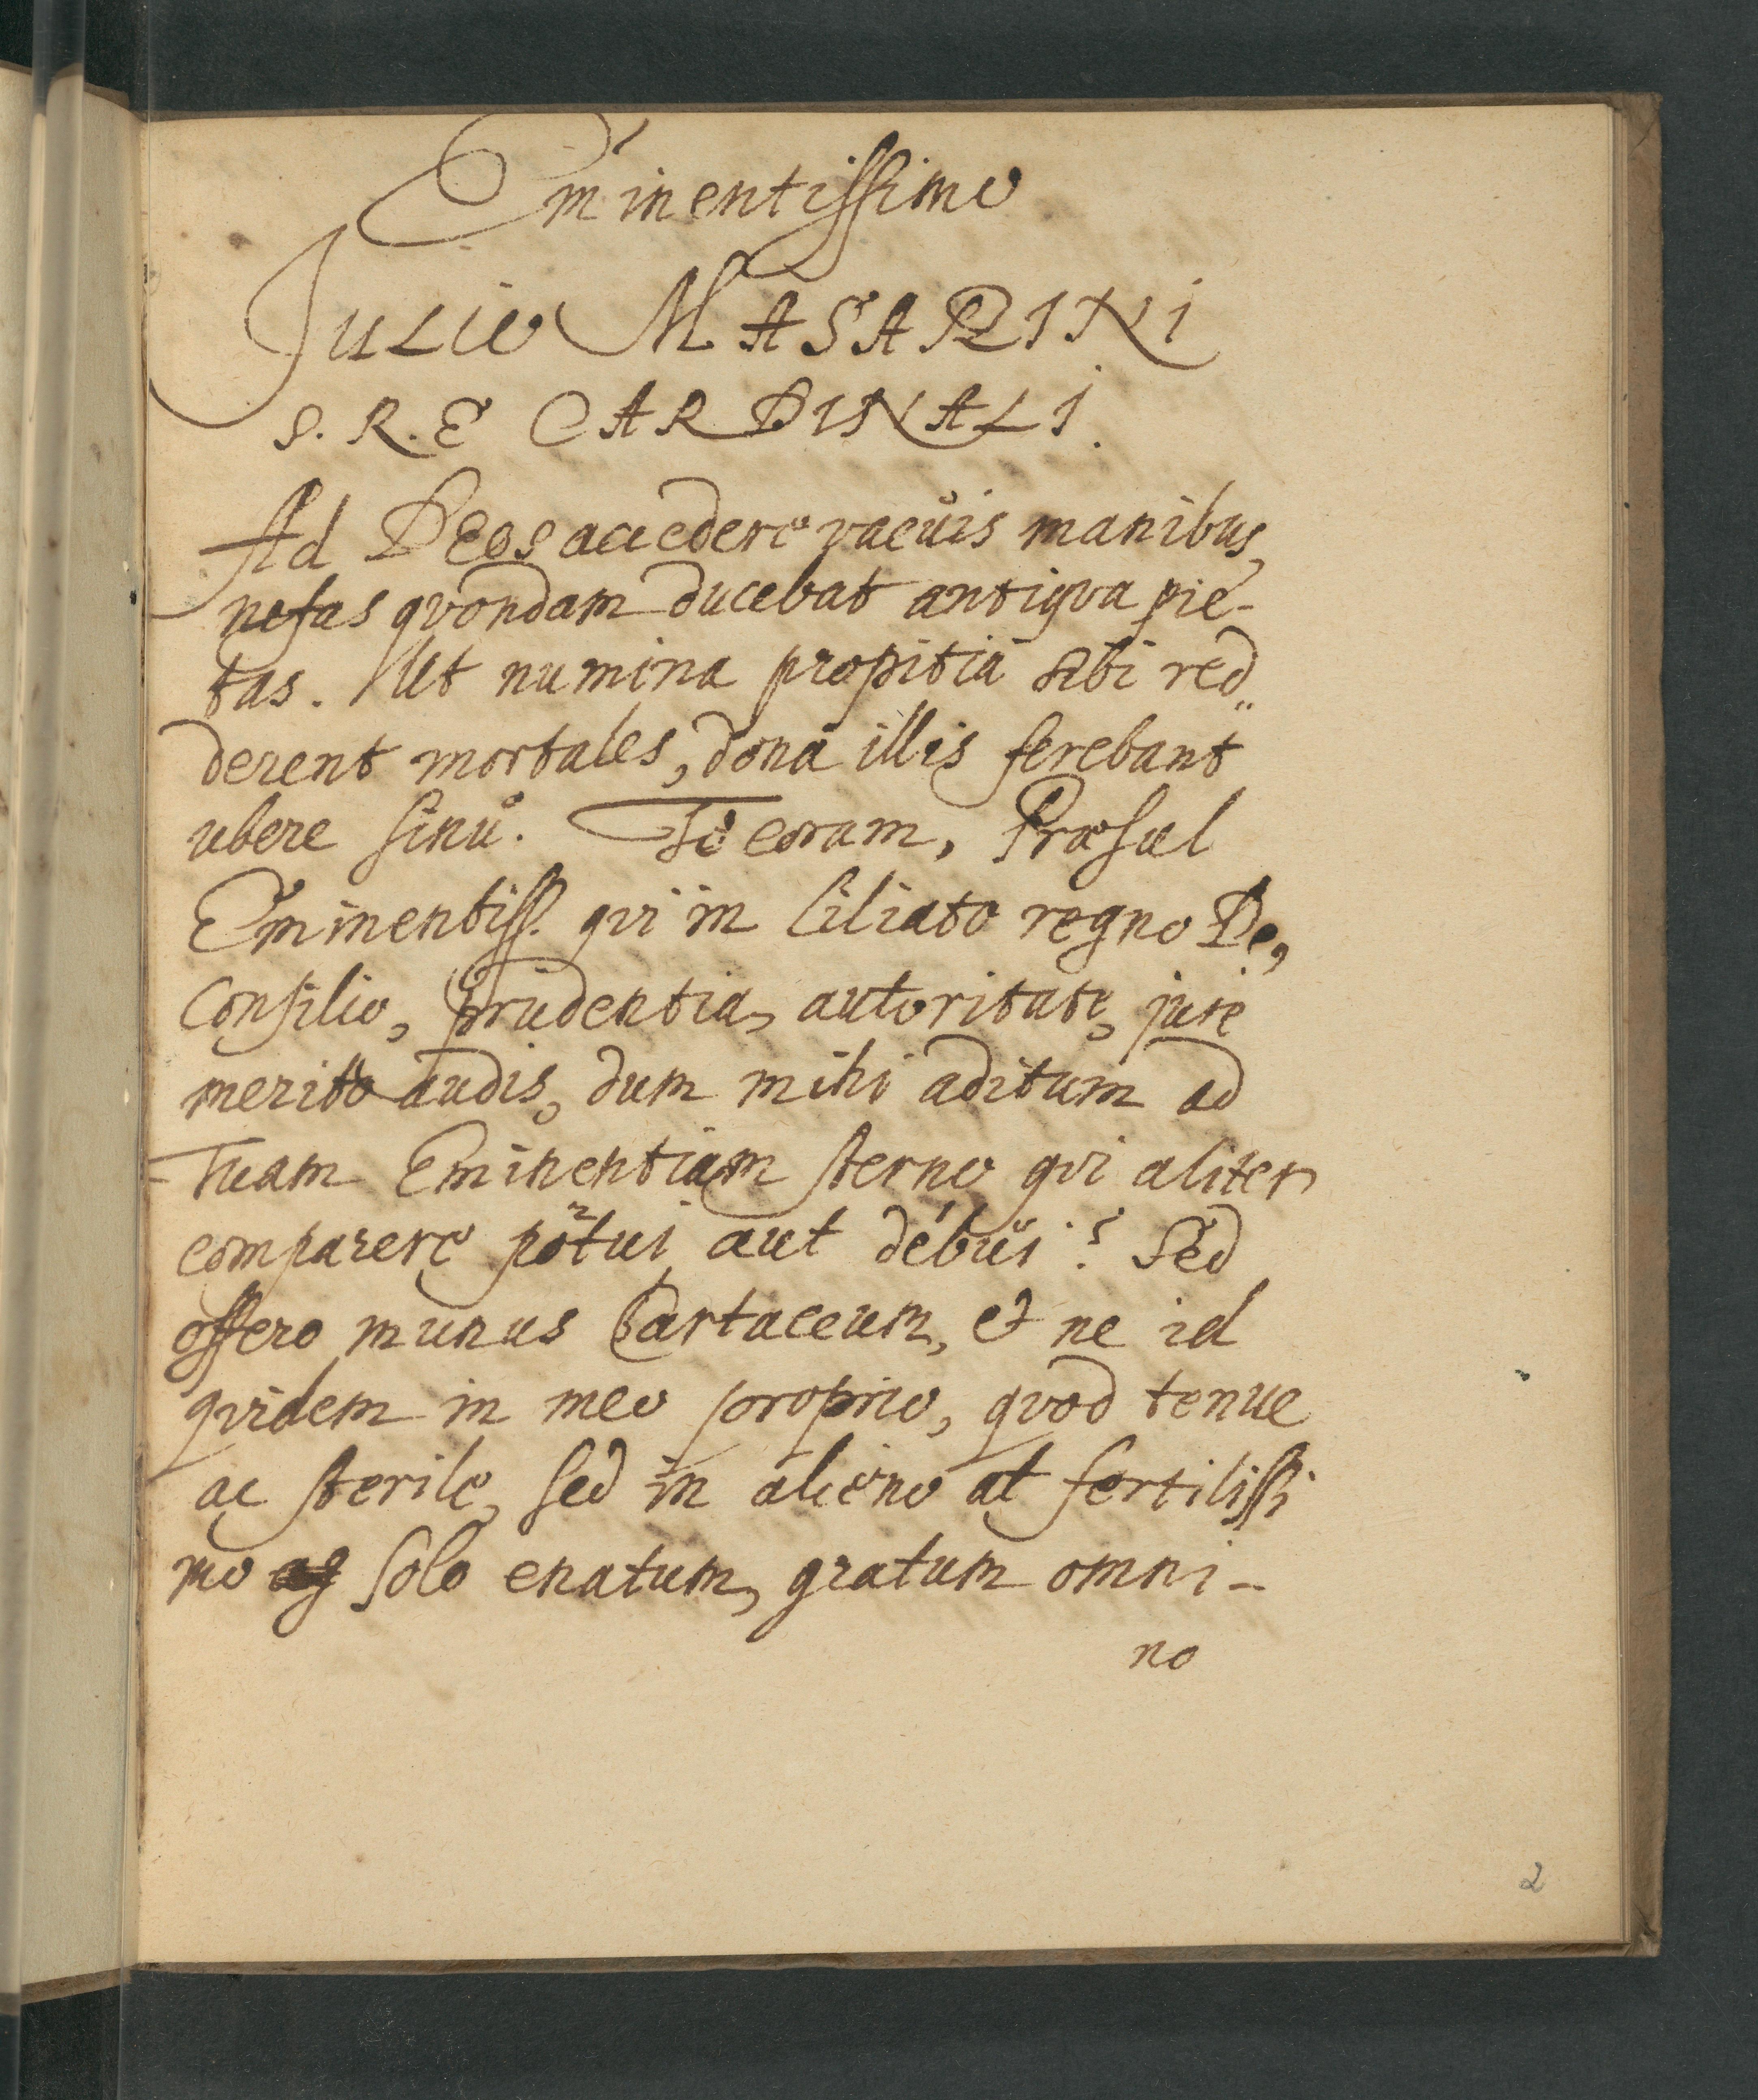 Eminentissimo
Julio MASARINI
S. R. E CARDINALI.
Ad Deos accedere vacuis manibus,
nefas qvondam ducebat antiqva pie-
tas. Ut numina propitia sibi red„
derent mortales, dona illis ferebant
ubere sinu. Te coram, Præsul
Eminentiss. qvi in liliato regno De,
Consilio, prudentia, autoritate, jure
merito audis, dum mihi aditum ad
Tuam Eminentiam sterno qvi aliter
comparere potui aut debui? Sed
offero munus Cartaceum, et ne id
qvidem in meo proprio, qvod tenue
ac sterile, sed in alieno at fertilissi
mo solo enatum, gratum omni-
no
2